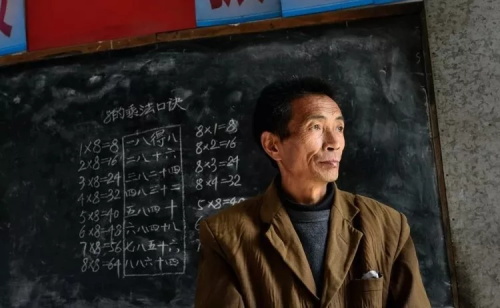 8的乘法口诀
1×8=8 一八得八 8×1=8
2×8=16 二八十六 8×2=16
3×8=24 三八二十四 8×3=24
4×8=32 四八三十二 8×4=32
5×8=40 五八四十 5×8=40
6×8=48 六八四十八
7×8=56 七八五十六
8×8=64 八八六十四